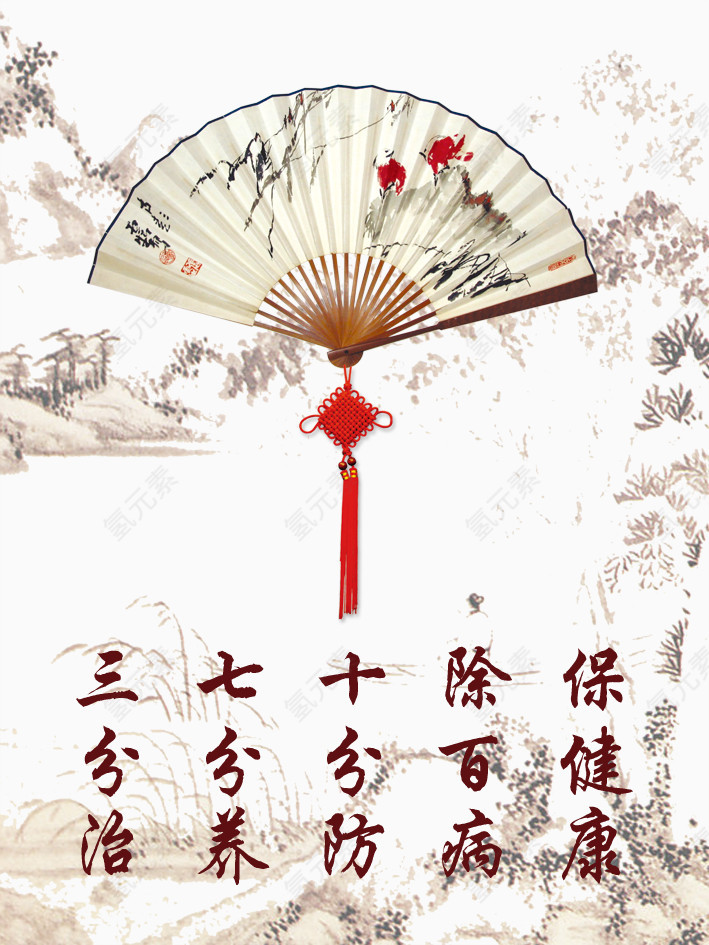 三分治
七分养
十分防
除百病
保健康
氢元素